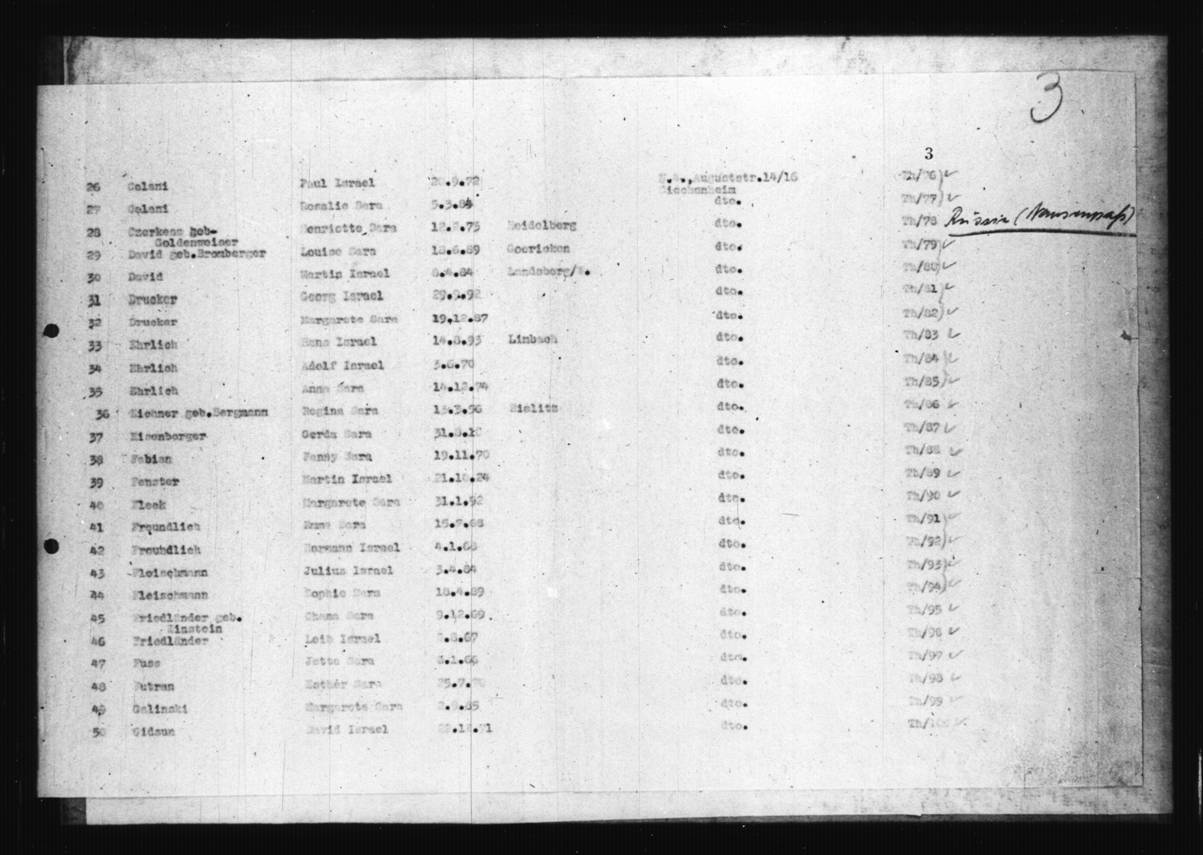 3
3
26 Colani Paul Israel 20.9.72 N.4.,Auguststr.14/16 Th/76) ✓
Siechenheim
27 Colani Rosalie Sara 5.3.84 dto. Th/77) ✓
28 Czerkess geb- Henriette Sara 12.2.75 Heidelberg dto. Th/78 Russin (Nansenpaß)
Goldenweiser
29 David geb.Bromberger Louise Sara 18.6.89 dto. Th/79) ✓
30 David Martin Israel 8.4.84 Landsberg/W. dto. Th/80) ✓
31 Drucker Georg Israel 29.9.92 dto. Th/81) ✓
32 Drucker Margarete Sara 19.12.87 dto. Th/82) ✓
33 Ehrlich Hans Israel 14.8.93 Limbach dto. Th/83 ✓
34 Ehrlich Adolf Israel 3.6.70 dto. Th/84) ✓
35 Ehrlich Anna Sara 14.12.74 dto. Th/85) ✓
36 Eichner geb.Bergmann Regina Sara 13.3.56 Bielitz dto. Th/86 ✓
37 Eisenberger Gerda Sara dto. Th/87 ✓
38 Fabian Fanny Sara 19.11.70 dto. Th/88 ✓
39 Fenster Martin Israel 21.10.24 dto. Th/89 ✓
40 Fleck Margarete Sara 31.1.92 dto. Th/90 ✓
41 Freundlich Sara 15.7.68 dto. Th/91) ✓
42 Freundlich Hermann Israel 4.1.68 dto. Th/92) ✓
43 Fleischmann Julius Israel 3.4.84 dto. Th/93) ✓
44 Fleischmann Sophie Sara 18.4.89 dto. Th/94) ✓
45 Friedländer geb. Chana Sara 9.12.69 dto. Th/95 ✓
Einstein
46 Friedländer Leib Israel 2.8.67 dto. Th/96 ✓
47 Fuss Jette Sara dto. Th/97 ✓
48 Futran Esther Sara dto. Th/98 ✓
49 Galinski Margarete Sara 2.9.85 dto. Th/99 ✓
50 Gidsun David Israel dto. Th/100 ✓